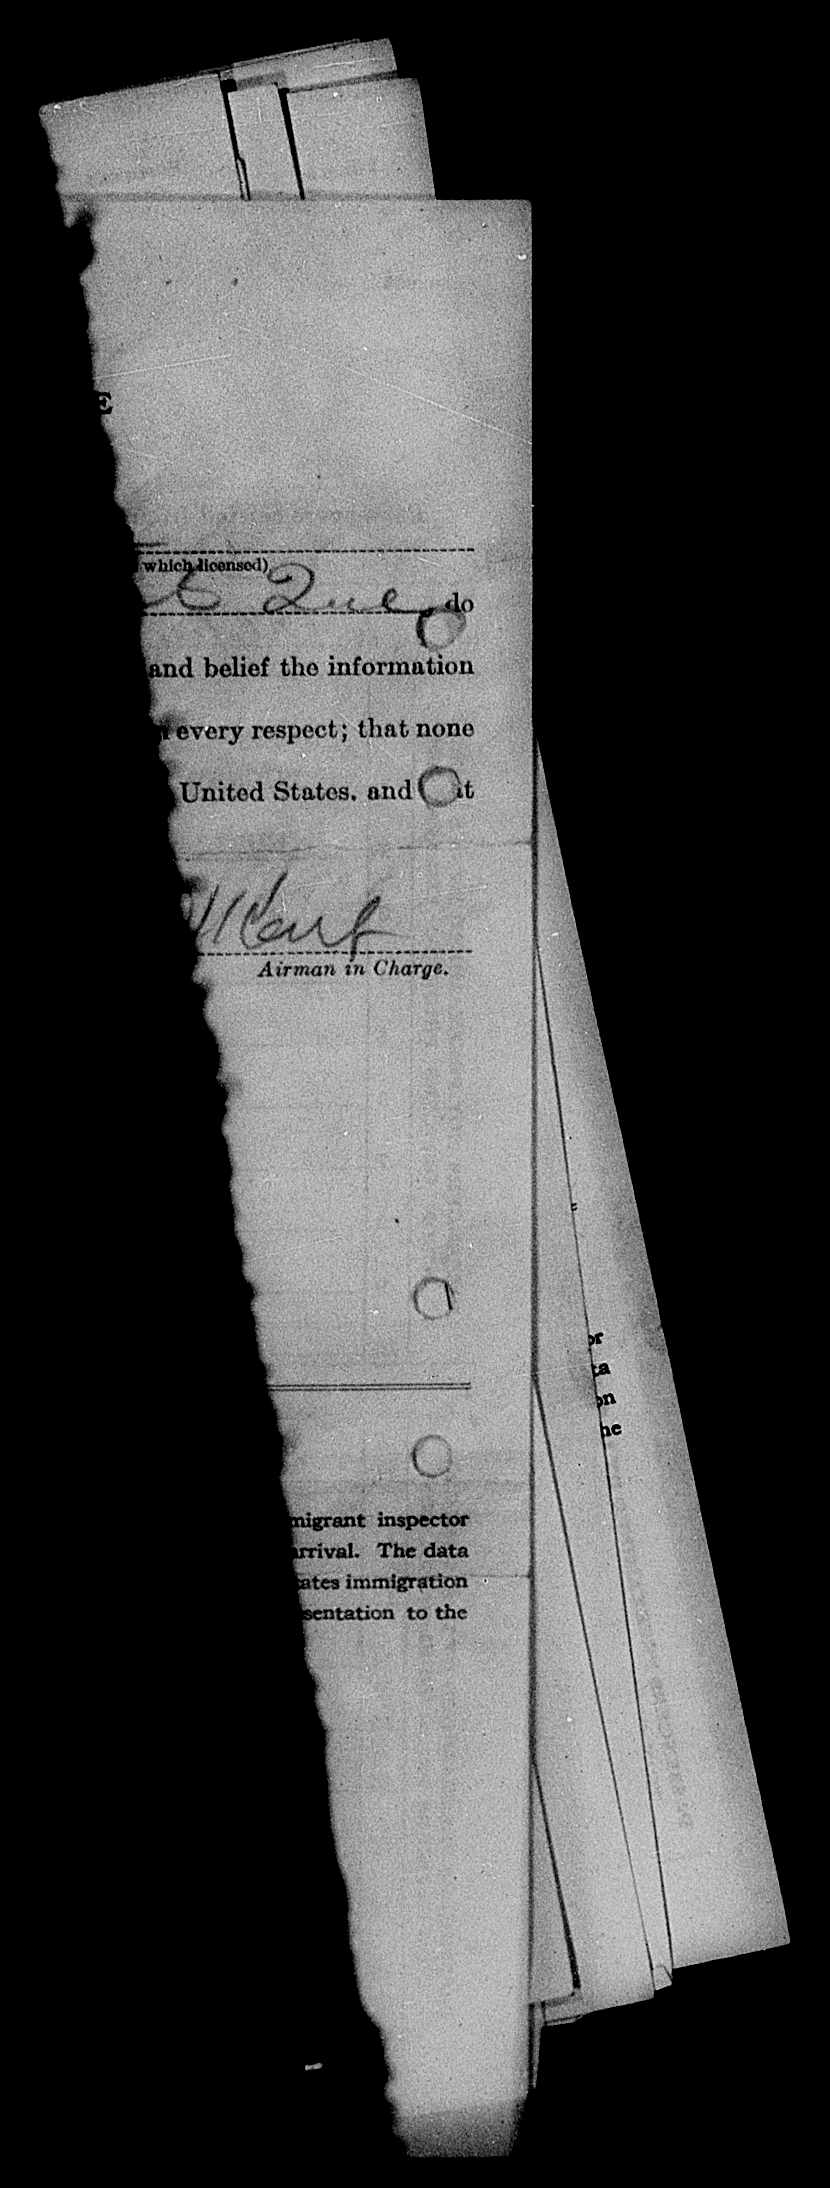 E
which licensed)
Que, do
and belief the information
every respect; that none
United States, and
Airman in Charge.
or
ta
on
he
migrant inspector
arrival. The data
ates immigration
sentation to the